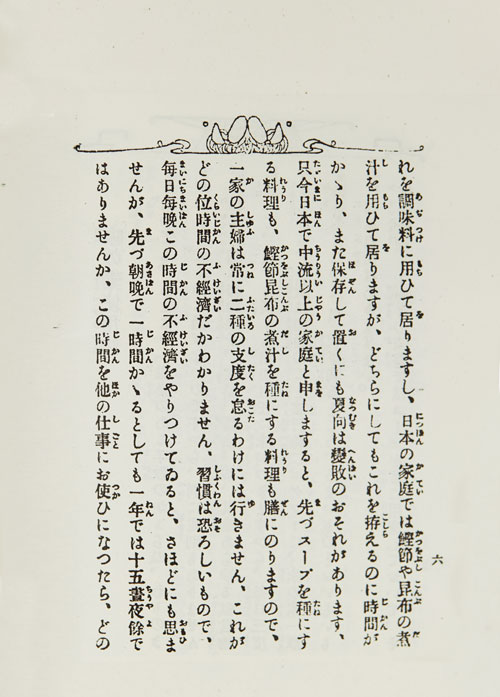 れを調味料に用ひて居りますし、日本の家庭では鰹節や昆布の煮
汁を用ひて居りますが、どちらにしてもこれを拵えるのに時間が
かゝり、また保存して置くにも夏向は變敗のおそれがあります、
只今日本で中流以上の家庭と申しますると、先づスープを種にす
る料理も、鰹節昆布の煮汁を種にする料理も膳にのりますので、
一家の主婦は常に二種の支度を怠るわけには行きません、これが
どの位時間の不經濟だかわかりません、習慣は恐ろしいもので、
毎日毎晩この時間の不經濟をやりつけてゐると、さほどにも思ま
せんが、先づ朝晩で一時間かゝるとしても一年では十五晝夜餘で
はありませんか、この時間を他の仕事にお使ひになつたら、どの
六